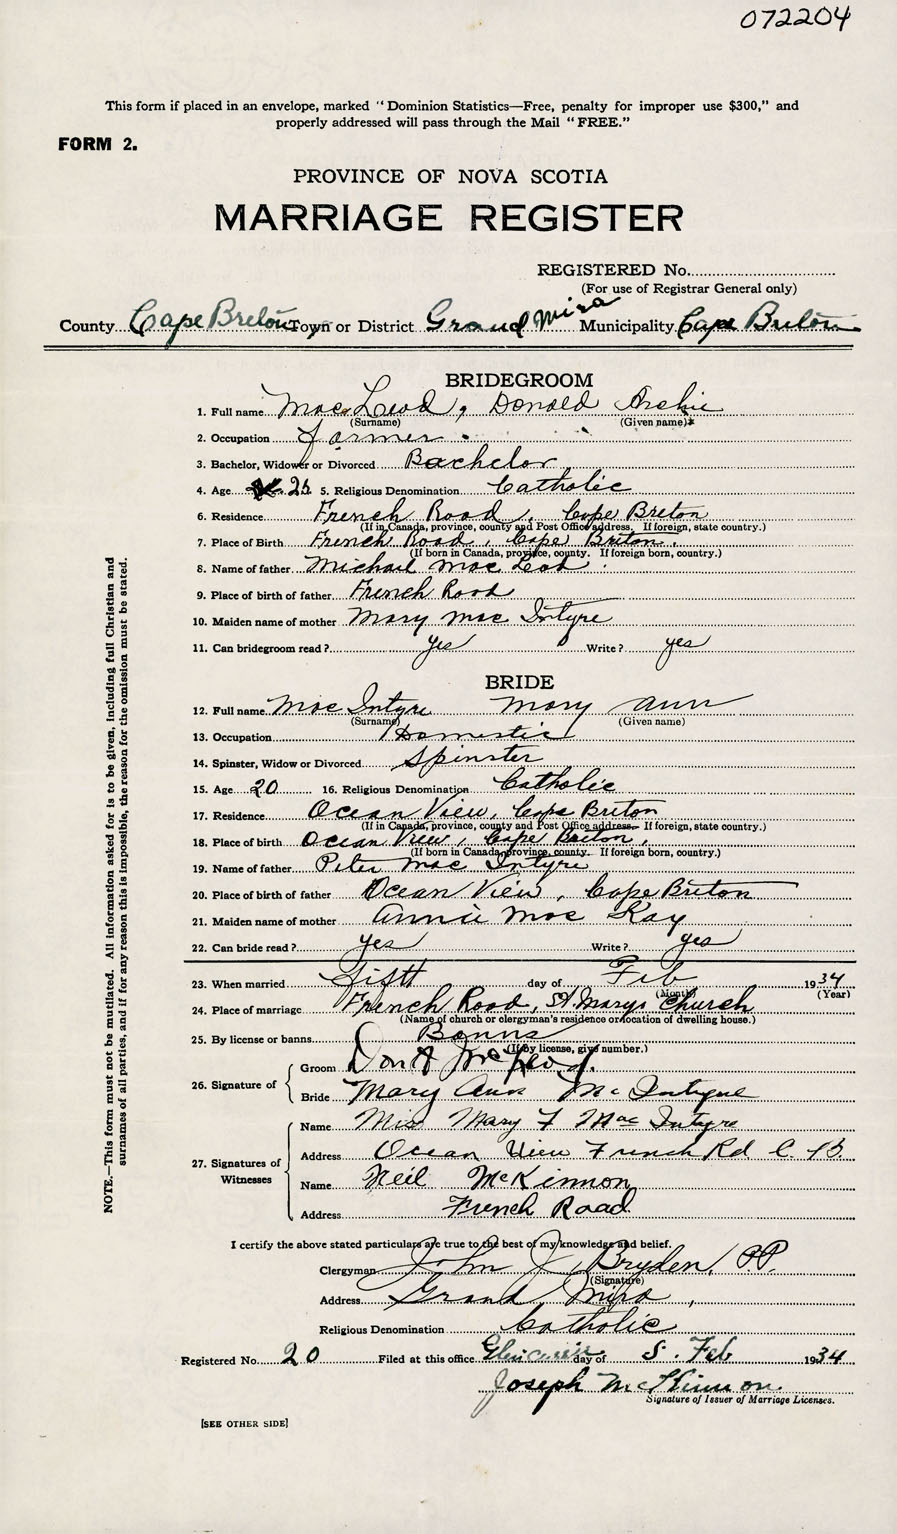 072204
This form if placed in an envelope, marked "Dominion Statistics—Free, penalty for improper use $300," and
properly addressed will pass through the Mail "FREE."
FORM 2.
PROVINCE OF NOVA SCOTIA
MARRIAGE REGISTER
REGISTERED No.
(For use of Registrar General only)
County Cape Breton Town or District Grand Mira Municipality Cape Breton
BRIDEGROOM
1. Full name Mac Leod, Donald Archie
(Surname) (Given name)
2. Occupation Farmer
3. Bachelor, Widower or Divorced Bachelor
4. Age 25 5. Religious Denomination Catholic
6. Residence French Road, Cape Breton
(If in Canada, province, county and Post Office address. If foreign, state country.)
7. Place of Birth French Road, Cape Breton
(If born in Canada, province, county. If foreign born, country.)
8. Name of father Michael Mac Leod
9. Place of birth of father French Road
10. Maiden name of mother Mary Mac Intyre
11. Can bridegroom read? yes Write? yes
BRIDE
12. Full name Mac Intyre Mary Ann
(Surname) (Given name)
13. Occupation Domestic
14. Spinster, Widow or Divorced Spinster
15. Age 20 16. Religious Denomination Catholic
17. Residence Ocean View, Cape Breton
(If in Canada, province, county and Post Office address. If foreign, state country.)
18. Place of birth Ocean View, Cape Breton,
(If born in Canada, province, county. If foreign born, country.)
19. Name of father Peter Mac Intyre
20. Place of birth of father Ocean View, Cape Breton
21. Maiden name of mother Annie Mac Kay
22. Can bride read? yes Write? yes
23. When married Fifth day of Feb 1934
(Month) (Year)
24. Place of marriage French Road, St Marys Church
(Name of church or clergyman's residence or location of dwelling house.)
25. By license or banns Banns
(If by license, give number.)
26. Signature of
Groom Don A McLeod.
Bride Mary Ann McIntyre
27. Signatures of Witnesses
Name Miss Mary F MacIntyre
Address Ocean View French Rd C. B.
Name Neil McKinnon
Address French Road
I certify the above stated particulars are true to the best of my knowledge and belief.
Clergyman John J. Bryden, P.P.
(Signature)
Address Grand Mira,
Religious Denomination Catholic
Registered No. 20 Filed at this office day of 5. Feb 1934
Joseph McKinnon.
Signature of Issuer of Marriage Licenses.
[SEE OTHER SIDE]
NOTE.—This form must not be mutilated. All information asked for is to be given, including full Christian and
surnames of all parties, and if for any reason this is impossible, the reason for the omission must be stated.